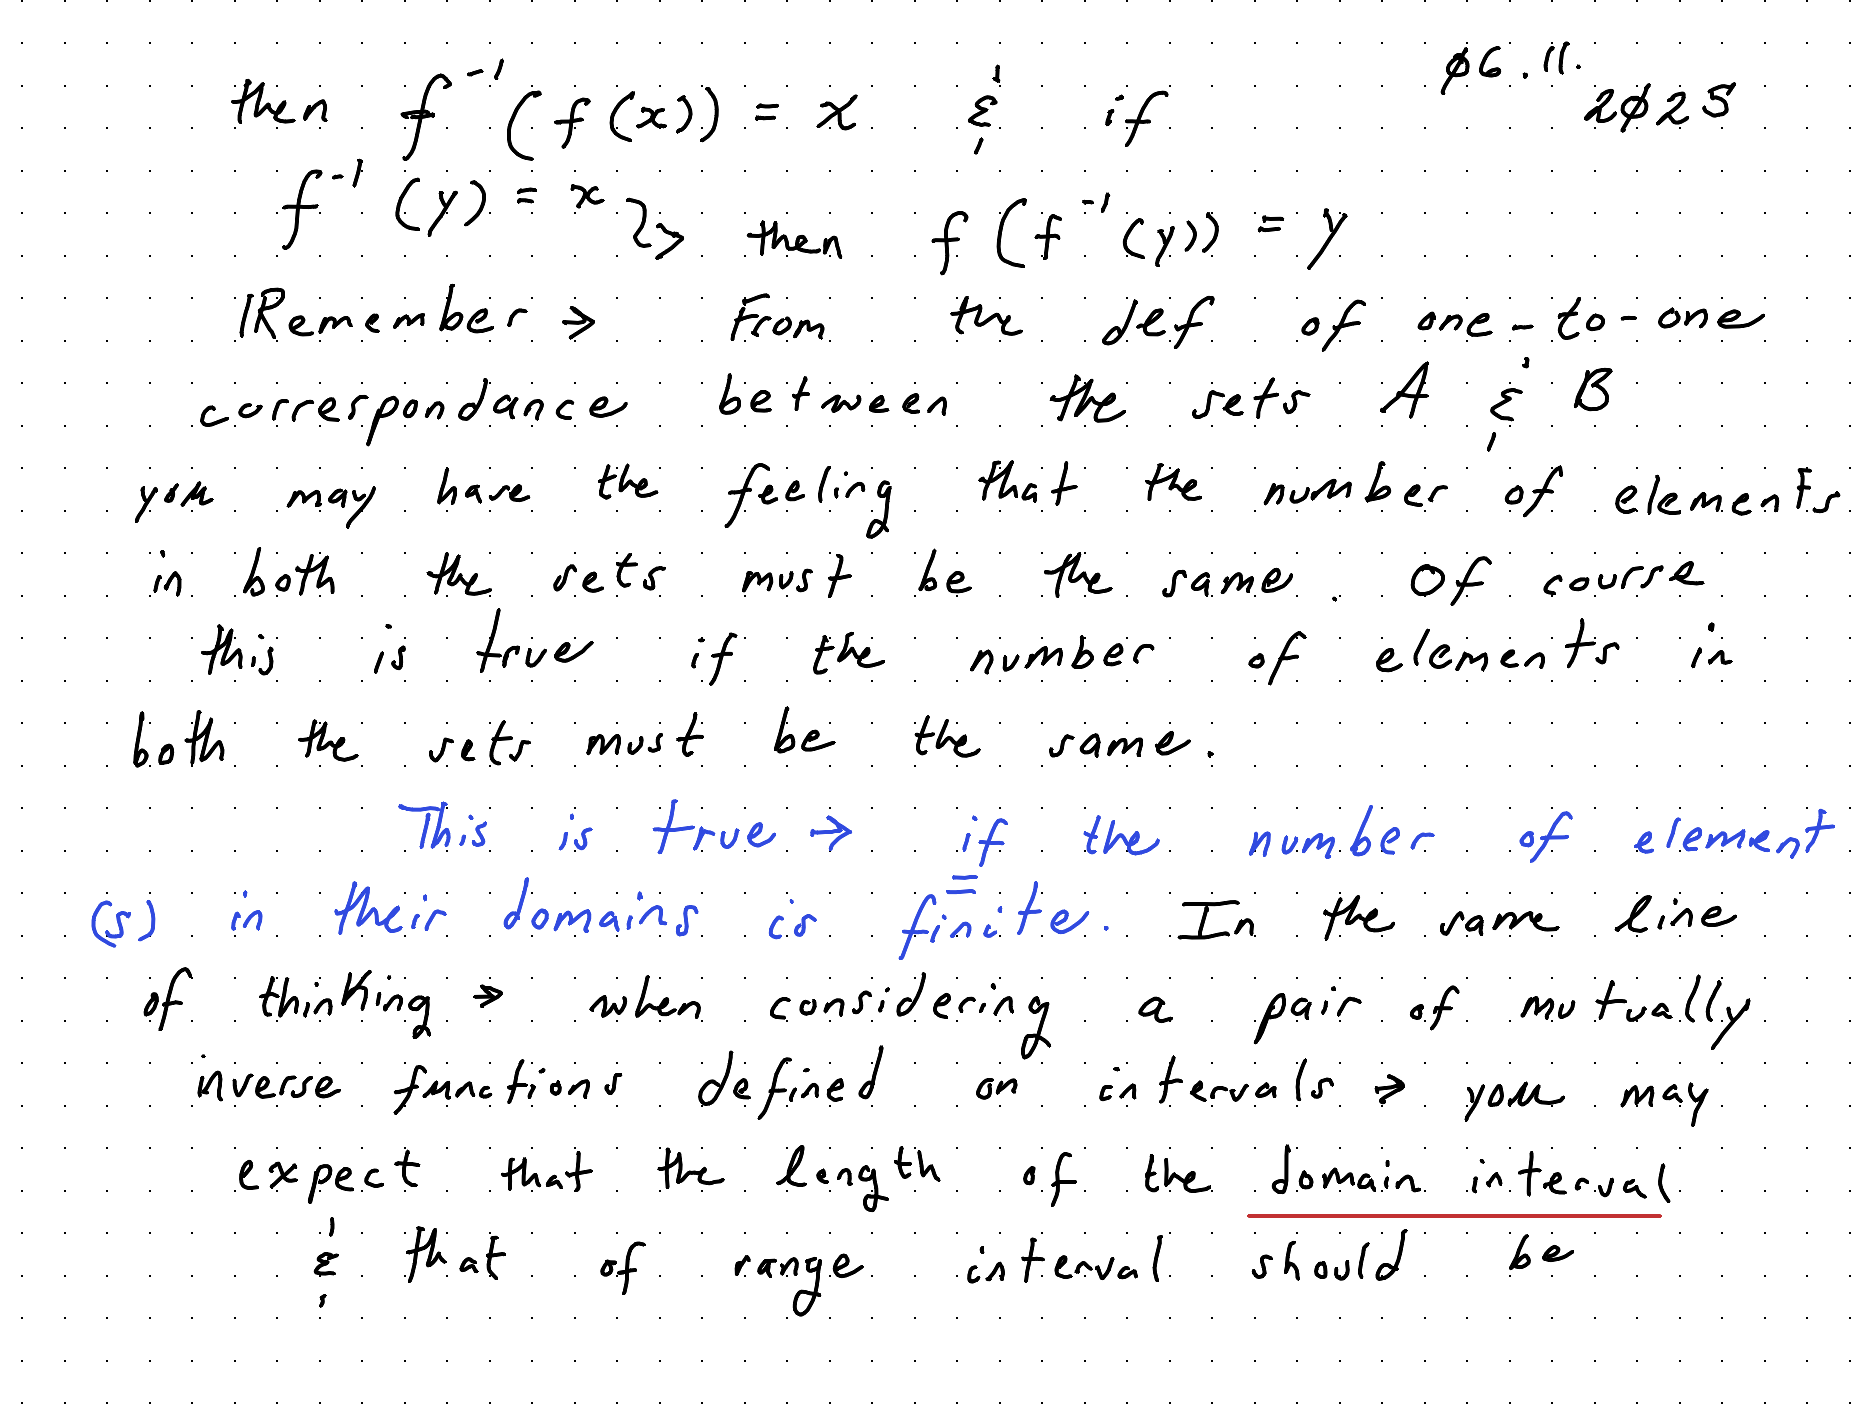 then f⁻¹(f(x)) = x & if
ø6.11.
2ø25
f⁻¹(y) = x } → then f(f⁻¹(y)) = y
Remember → From the def of one-to-one
correspondance between the sets A & B
you may have the feeling that the number of elements
in both the sets must be the same. Of course
this is true if the number of elements in
both the sets must be the same.
This is true → if the number of element
(s) in their domains is finite. In the same line
of thinking → when considering a pair of mutually
inverse functions defined on intervals → you may
expect that the length of the domain interval
& that of range interval should be